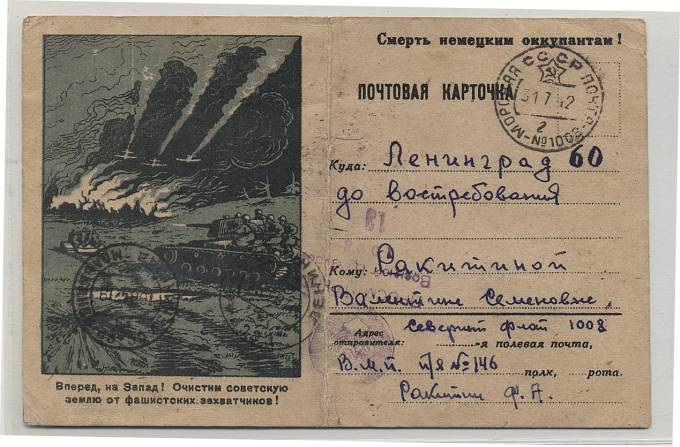 Смерть немецким оккупантам!
ПОЧТОВАЯ КАРТОЧКА
МОРСКАЯ СССР ПОЧТА
31 7 42
2
№1008
Куда: Ленинград 60
до востребования
19
Кому: Ракитиной
Валентине Семеновне
Адрес отправителя: Северный флот 1008
-я полевая почта,
В.М.П. П/Я №146 полк, рота.
Ракитин Ф. А.
Вперед, на Запад! Очистим советскую
землю от фашистских захватчиков!